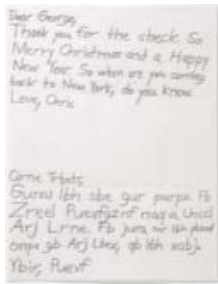 Dear George,
Thank you for the check. So
Merry Christmas and a Happy
New Year. So when are you coming
back to New York, do you know.
Love, Chris
Gurax lbh sbe gur purpx. Fb
Zreel Puevfgznf naq n Unccl
Arj Lrne. Fb jura ner lbh
onpx gb Arj Lbex, qb lbh xabj.
Ybir, Puevf